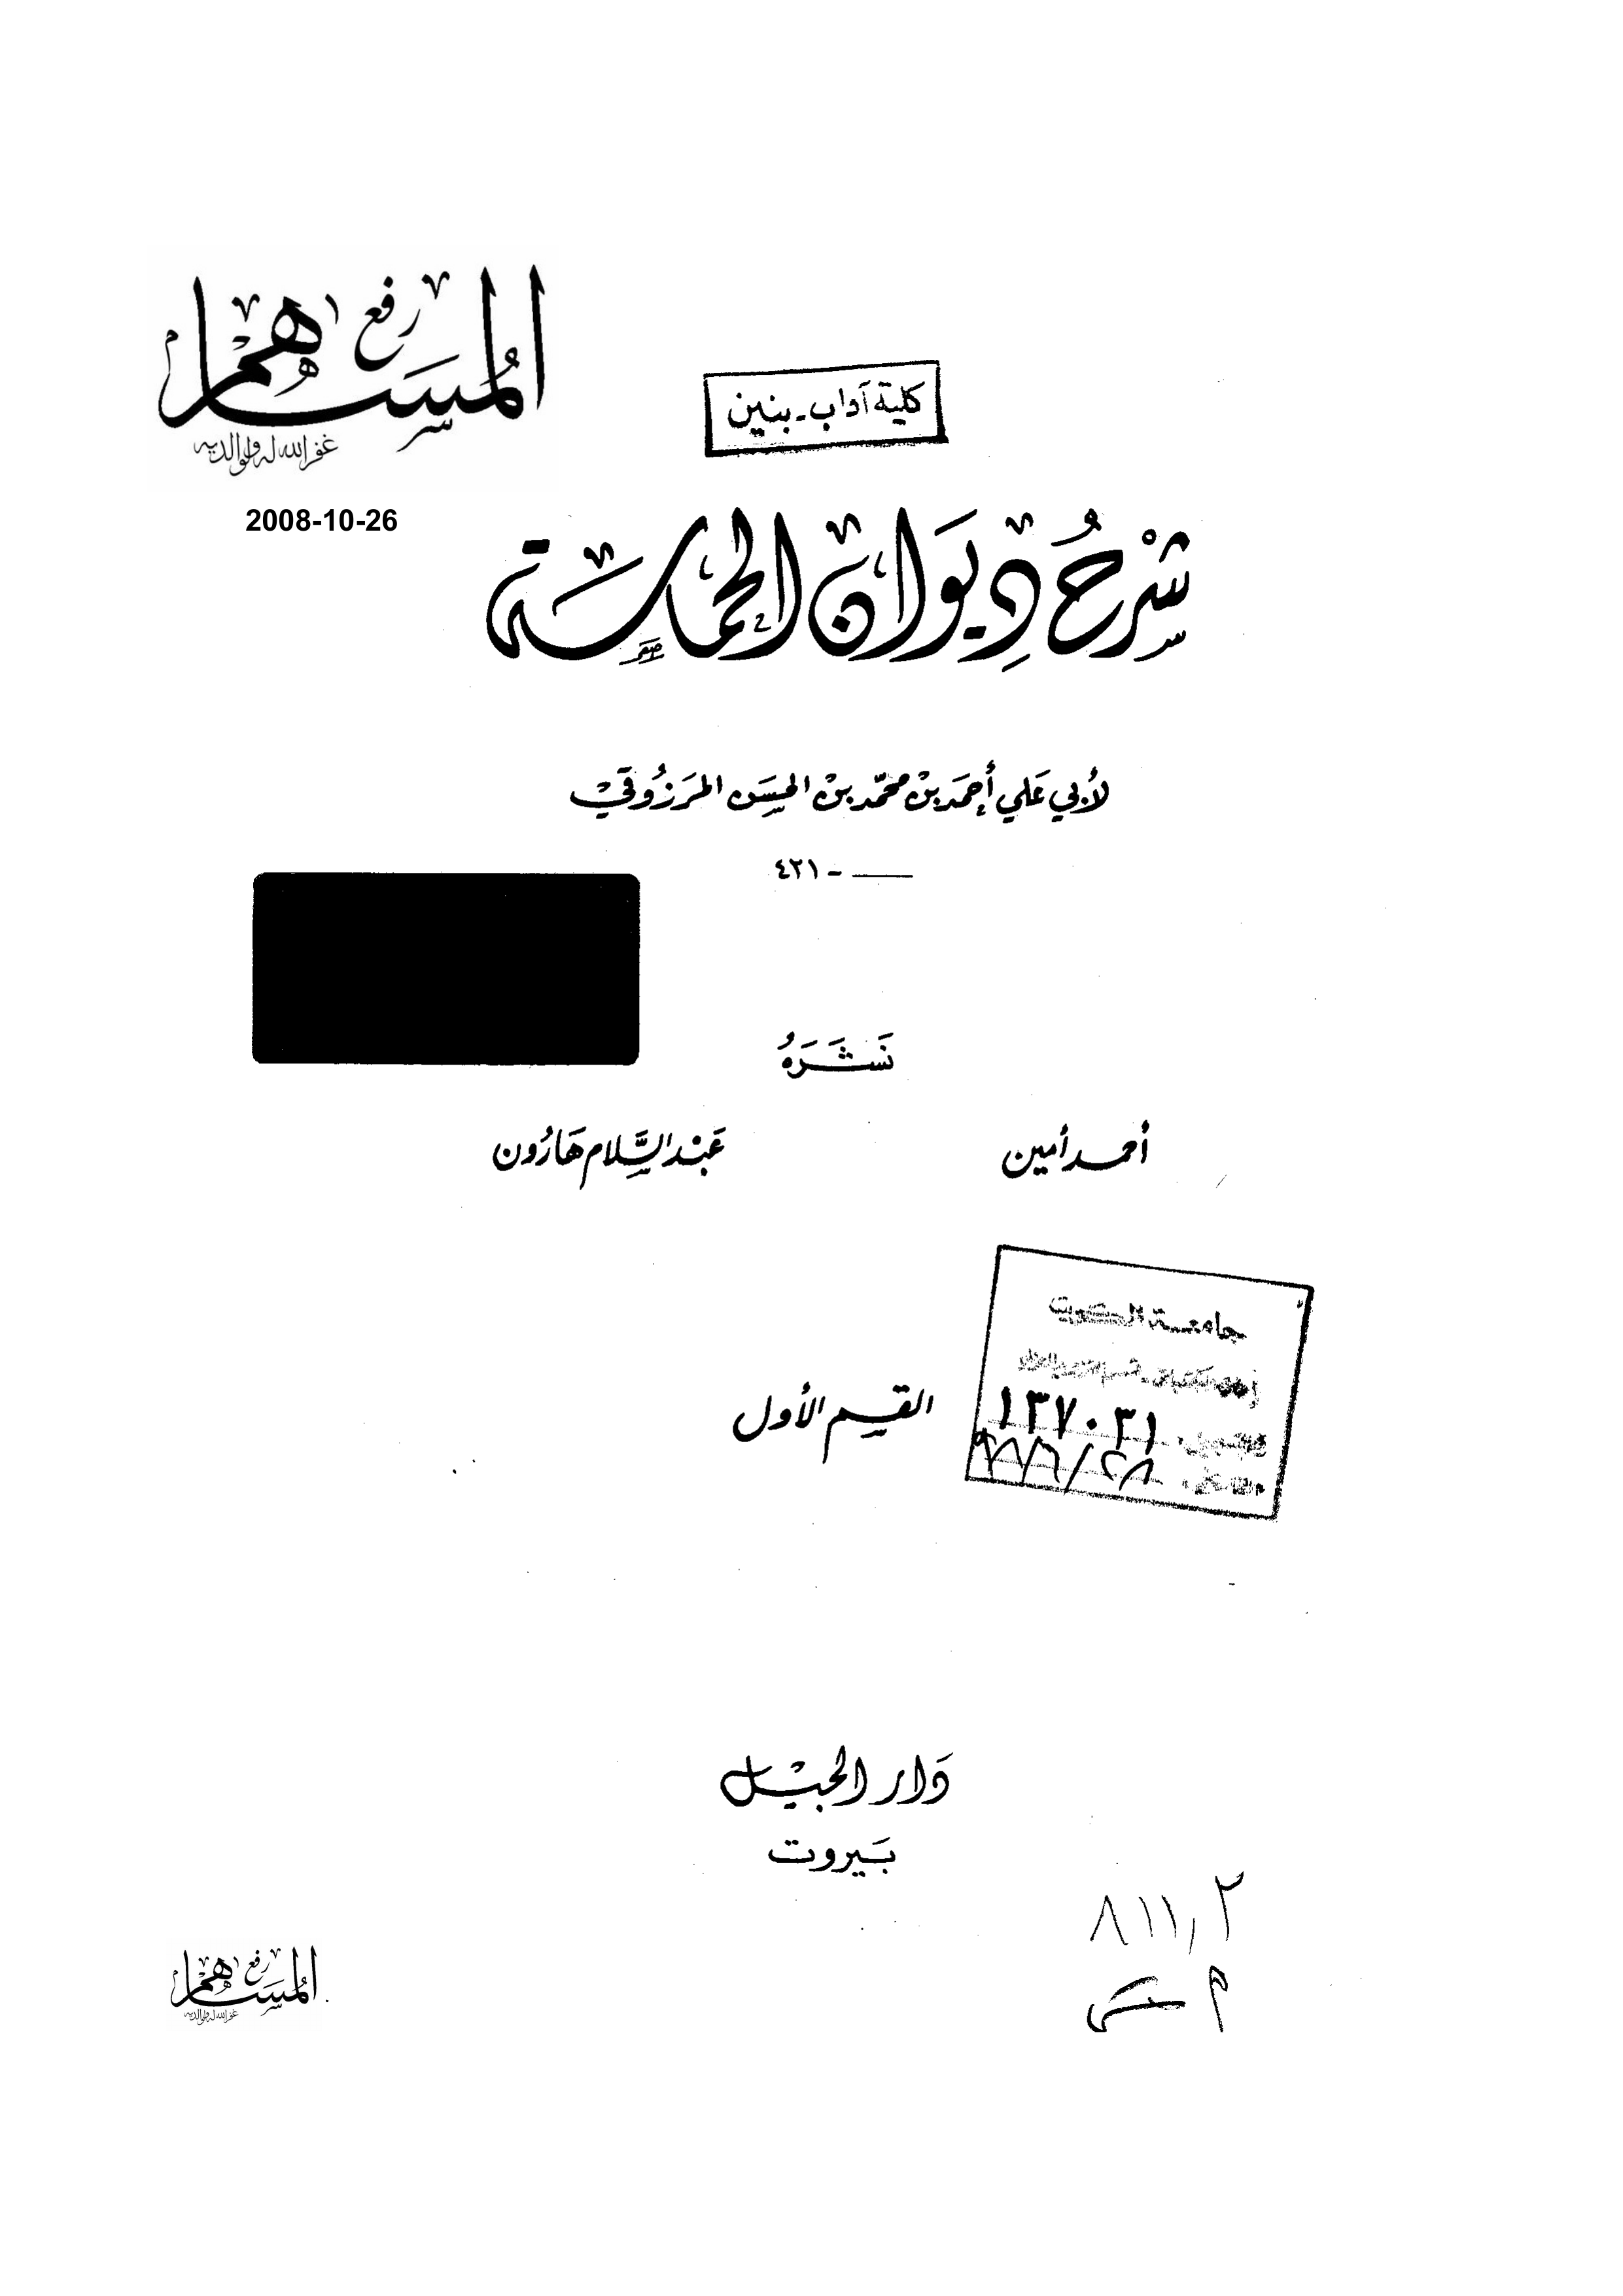 رفع
المساهم
غفر الله له ولوالديه
2008-10-26
كلية آداب - بنين
شَرْحُ دِيوَان الحماسَة
لأبي عَلي أحمَد بنْ محمّد بنْ الحسَن المرَزُوقيْ
— - ٤٢١
نَشَرَهُ
أحمد أمين
عَبْد السَّلام هَارُون
جامعة الكويت
١٣٧٠٣١
القسم الأول
دَار الجيْل
بَيروت
٨١١,٢
م
رفع
المساهم
غفر الله له ولوالديه